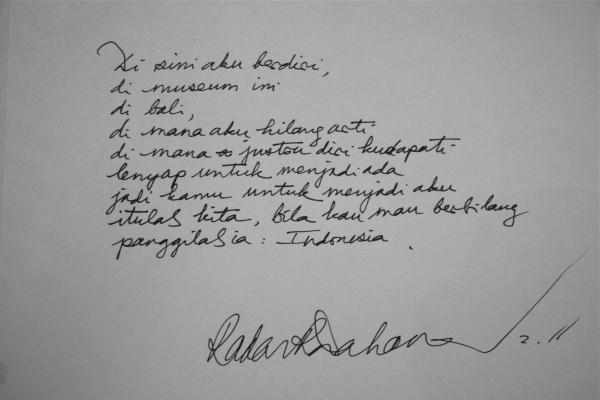 Di sini aku berdiri,
di museum ini
di bali,
di mana aku hilang arti
di mana justru diri kudapati
lenyap untuk menjadi ada
jadi kamu untuk menjadi aku
itulah kita, bila kau mau berbilang
panggilah ia : Indonesia.
2.11